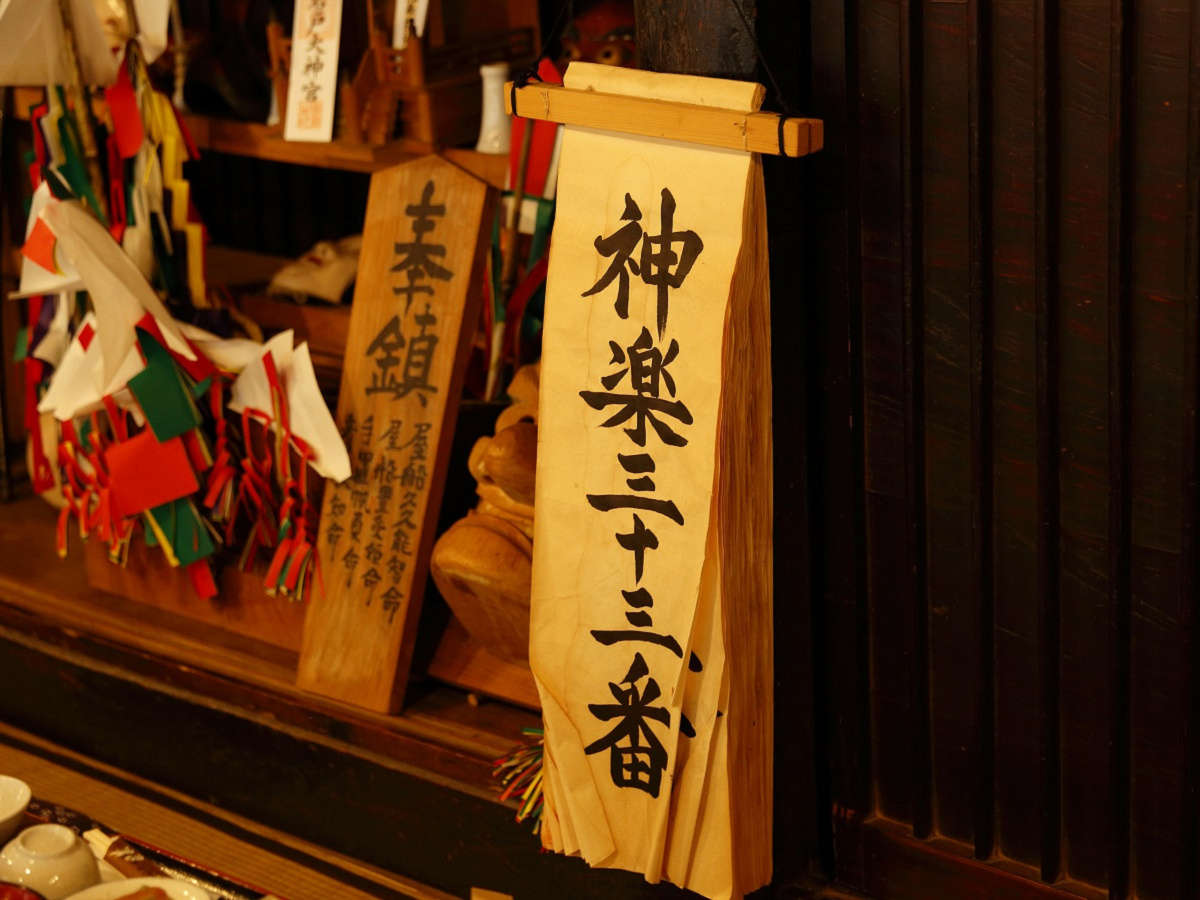 神楽三十三番
奉鎮
屋船久久能智命
屋船豊受姫命
手置帆負命
大神宮